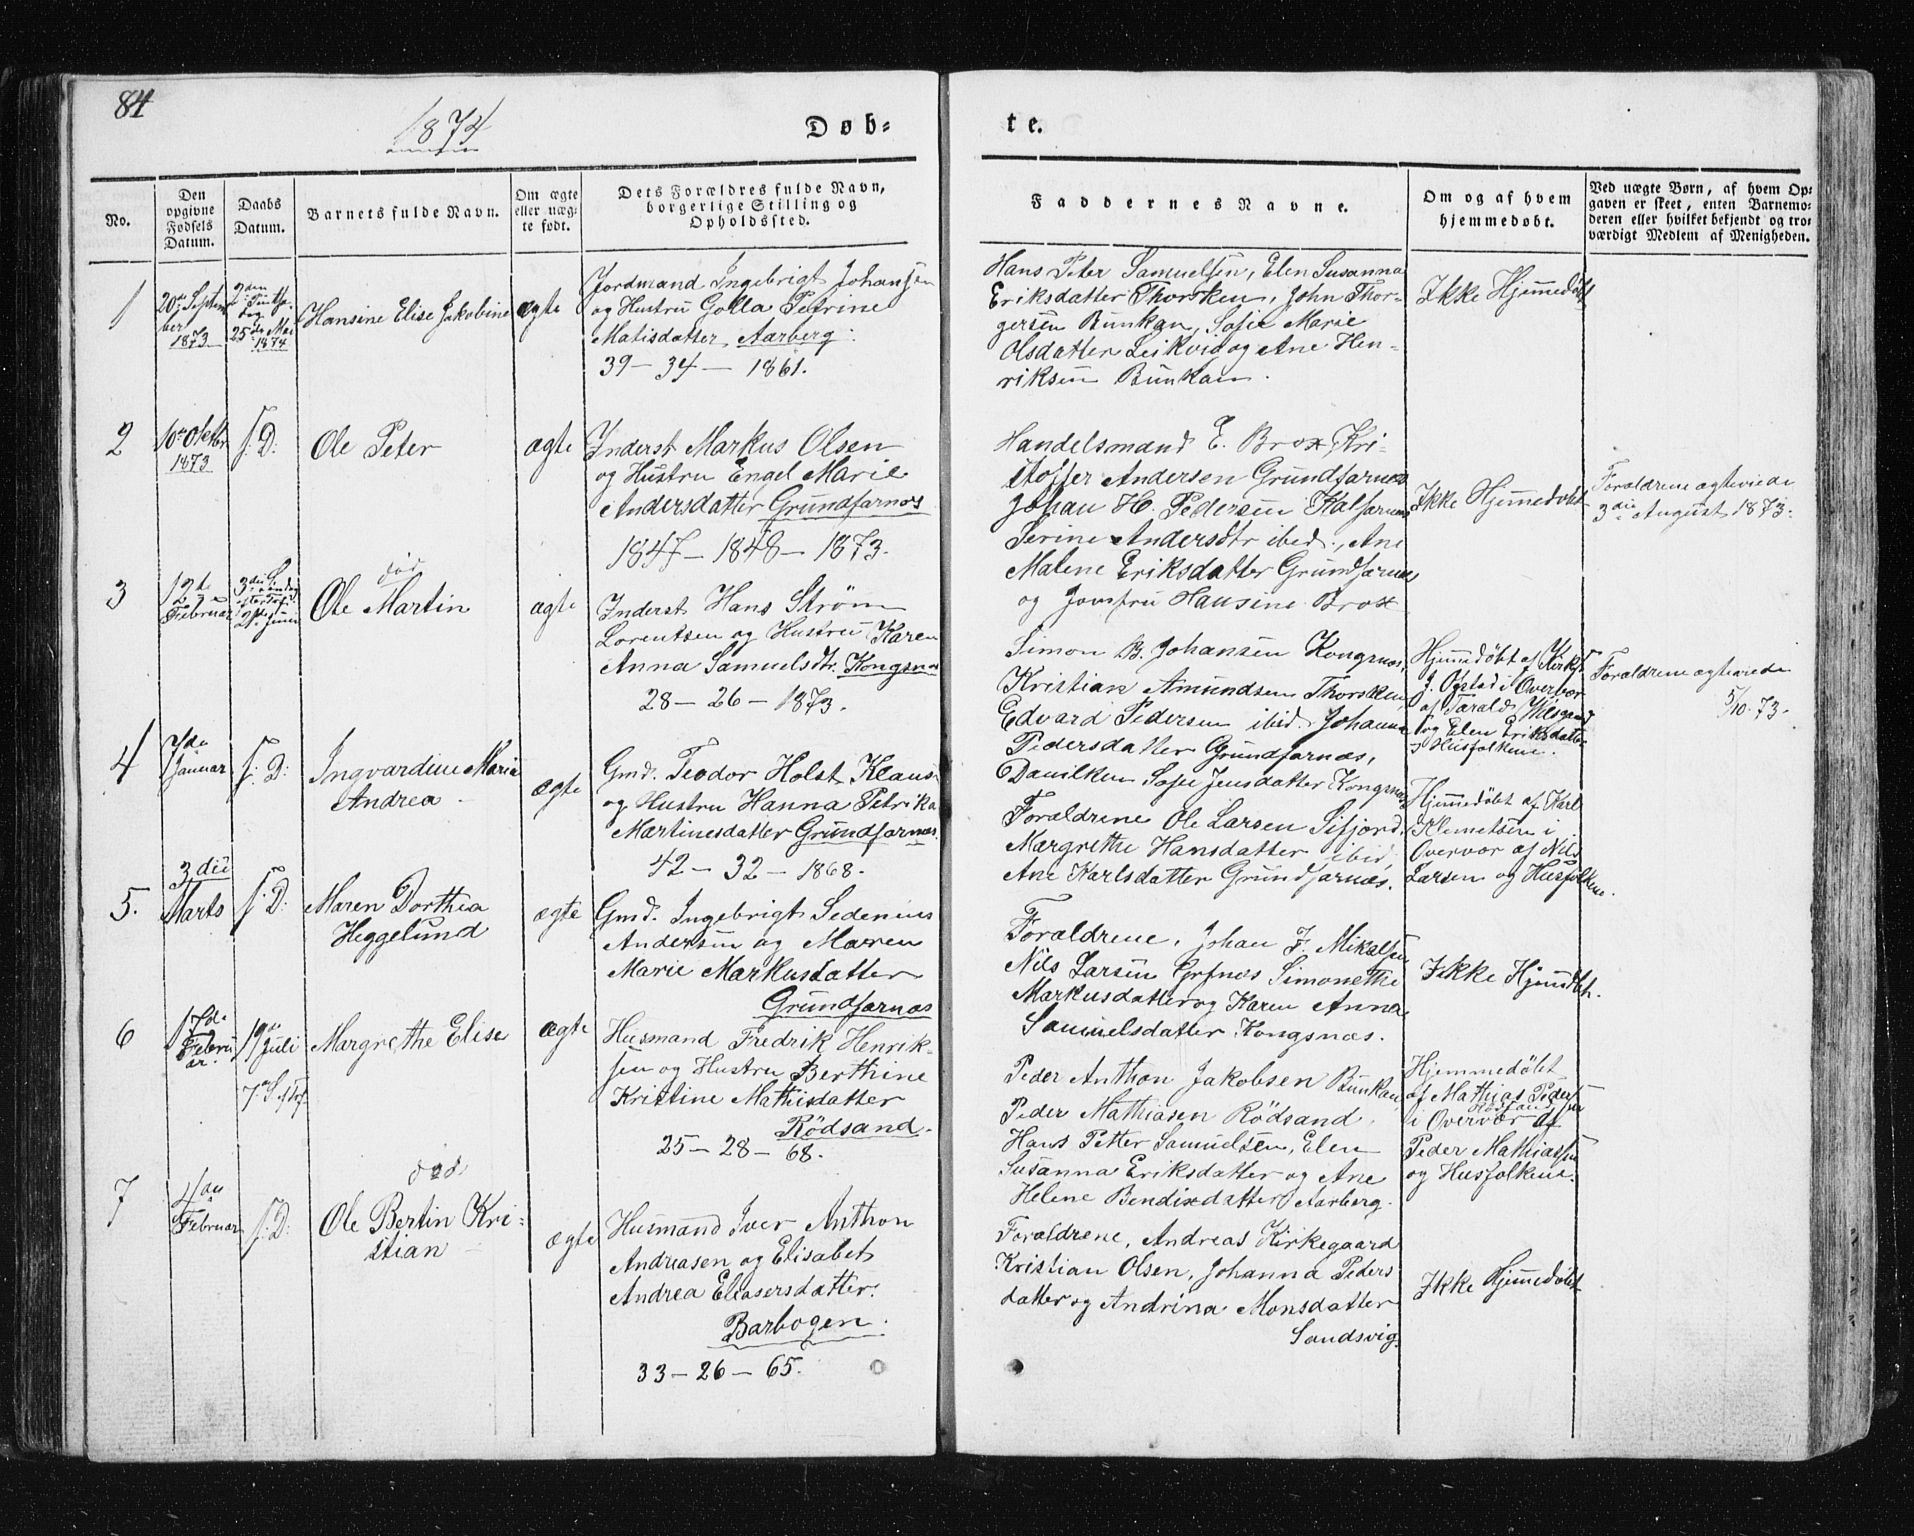 84
1874
Døb-
te.
No.
Den opgivne Fødsels Datum.
Daabs Datum.
Barnets fulde Navn.
Om ægte eller uægte født.
Dets Forældres fulde Navn, borgerlige Stilling og Opholdssted.
Faddernes Navne.
Om og af hvem hjemmedøbt.
Ved uægte Børn, af hvem Opgaven er skeet, enten Barnemoderen eller hvilket bekjendt og troværdigt Medlem af Menigheden.
1
20de Septem
ber
1873
2den
Pintse
dag
25de Mai
1874
Hansine Elise Jakobine
ægte
Jordmand Ingebrigt Johansen
og Hustru Golla Petrine
Matisdatter, Aarberg.
39 – 34 – 1861.
Hans Peter Samuelsen, Elen Susanna
Eriksdatter Thorsken, John Thor-
gersen Bunkan, Sofie Marie
Olsdatter Leikvig og Ane Hen-
riksen Bunkan.
Ikke Hjemmedøbt
2
10de Oktbr
1873
s. D.
Ole Peter
ægte
Inderst Markus Olsen
og Hustru Engel Marie
Andersdatter Grundfarnes
1847 – 1848 – 1873.
Handelsmand E. Brox, Kri-
stoffer Andersen Grundfarnes
Johan H. Pedersen Kalfarnes
Serine Andersdtr ibed., Ane
Malene Eriksdatter Grundfarnes
og Jomfru Hansine Brox
Ikke Hjemmedøbt
Forældrene ægteviede
3die August 1873.
3
12te
Februar
3die S.
efter Trefo
21de Juni
død
Ole Martin
ægte
Inderst Hans Strøm
Lorentsen og Hustru Karen
Anna Samuelsdtr. Kongsnes
28 – 26 – 1873.
Simon B. Johansen Kongsnes,
Kristian Amundsen Thorsken,
Edvard Pedersen ibid. Johanna
Pedersdatter Grundfarnæs,
Danilken Sofie Jensdatter Kongsnæs
Hjemmedøbt af Kirks.
J. Øgstad i Overvær
af Tarald
og Elen Eriksdatter
Husfolkene.
Forældrene ægteviede
5/10. 73.
4
7de
Januar
s. D.
Ingvardine Maria
Andrea
ægte
Gmd. Teodor Holst Klaus
og Hustru Hanna Petrika
Martinesdatter Grundfarnæs.
42 – 32 – 1868.
Forældrene Ole Larsen Sifjord,
Margrethe Hansdatter ibid
Ane Karlsdatter Grundfarnæs.
Hjemmedøbt af Karl
Klemetsen i
Overvær af Nils
Larsen og Husfolkene.
5.
3die
Marts
s. D.
Maren Dorthea
Heggelund
ægte
Gmd. Ingebrigt Sedenius
Andersen og Maren
Marie Markusdatter
Grundfarnæs
Forældrene, Johan F. Mikalsen
Nils Larsen Grfnæs Simonethe
Markusdatter og Karen Anna
Samuelsdatter Kongsnæs.
Ikke Hjemdøbt.
6
17de
Febru
ar.
19de
Juli
7de S. e. Tref
Margrethe Elise
ægte
Husmand Fredrik Henrik-
sen og Hustru Berthine
Kristine Mathisdatter
Rödsand.
25 – 28 – 68.
Peder Anthon Jakobsen Bunkan,
Peder Mathiasen Rödsand,
Hans Petter Samuelsen, Elen
Susanna Eriksdatter og Ane
Helene Bendixdatter Aarberg.
Hjemmedøbt
af Mathias Pedersen
Rödsand
i Overvær af
Peder Mathiassen
og Husfolkene.
7
4de
Februar
s. D.
død
Ole Bertin Kri-
stian
ægte
Husmand Iver Anthon
Andreasen og Elisabet
Andrea Eliasersdatter.
Barbogen.
33 – 26 – 65.
Forældrene, Andreas Kirkegaard
Kristian Olsen, Johanna Peders
datter og Andrina Monsdatter
Sandsvig.
Ikke Hjemmedøbt